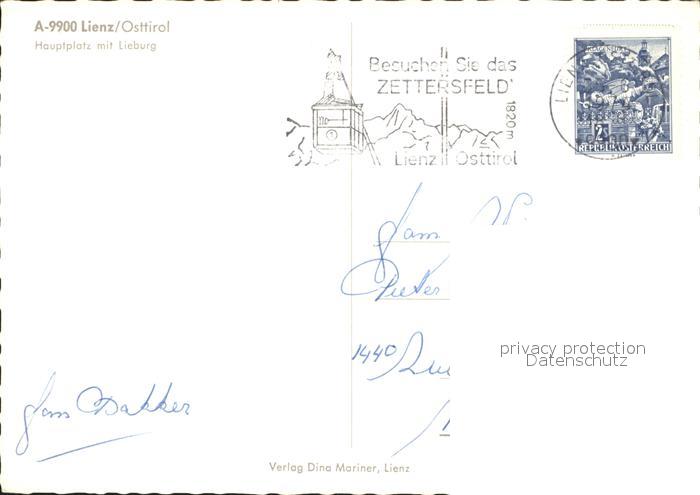 A-9900 Lienz/Osttirol
Hauptplatz mit Lieburg
Besuchen Sie das
ZETTERSFELD
1820 m
Lienz Osttirol
LIEN
2S
REPUBLIK ÖSTERREICH
Fam.
Pieter
1440
privacy protection
Datenschutz
Fam Bakker
Verlag Dina Mariner, Lienz